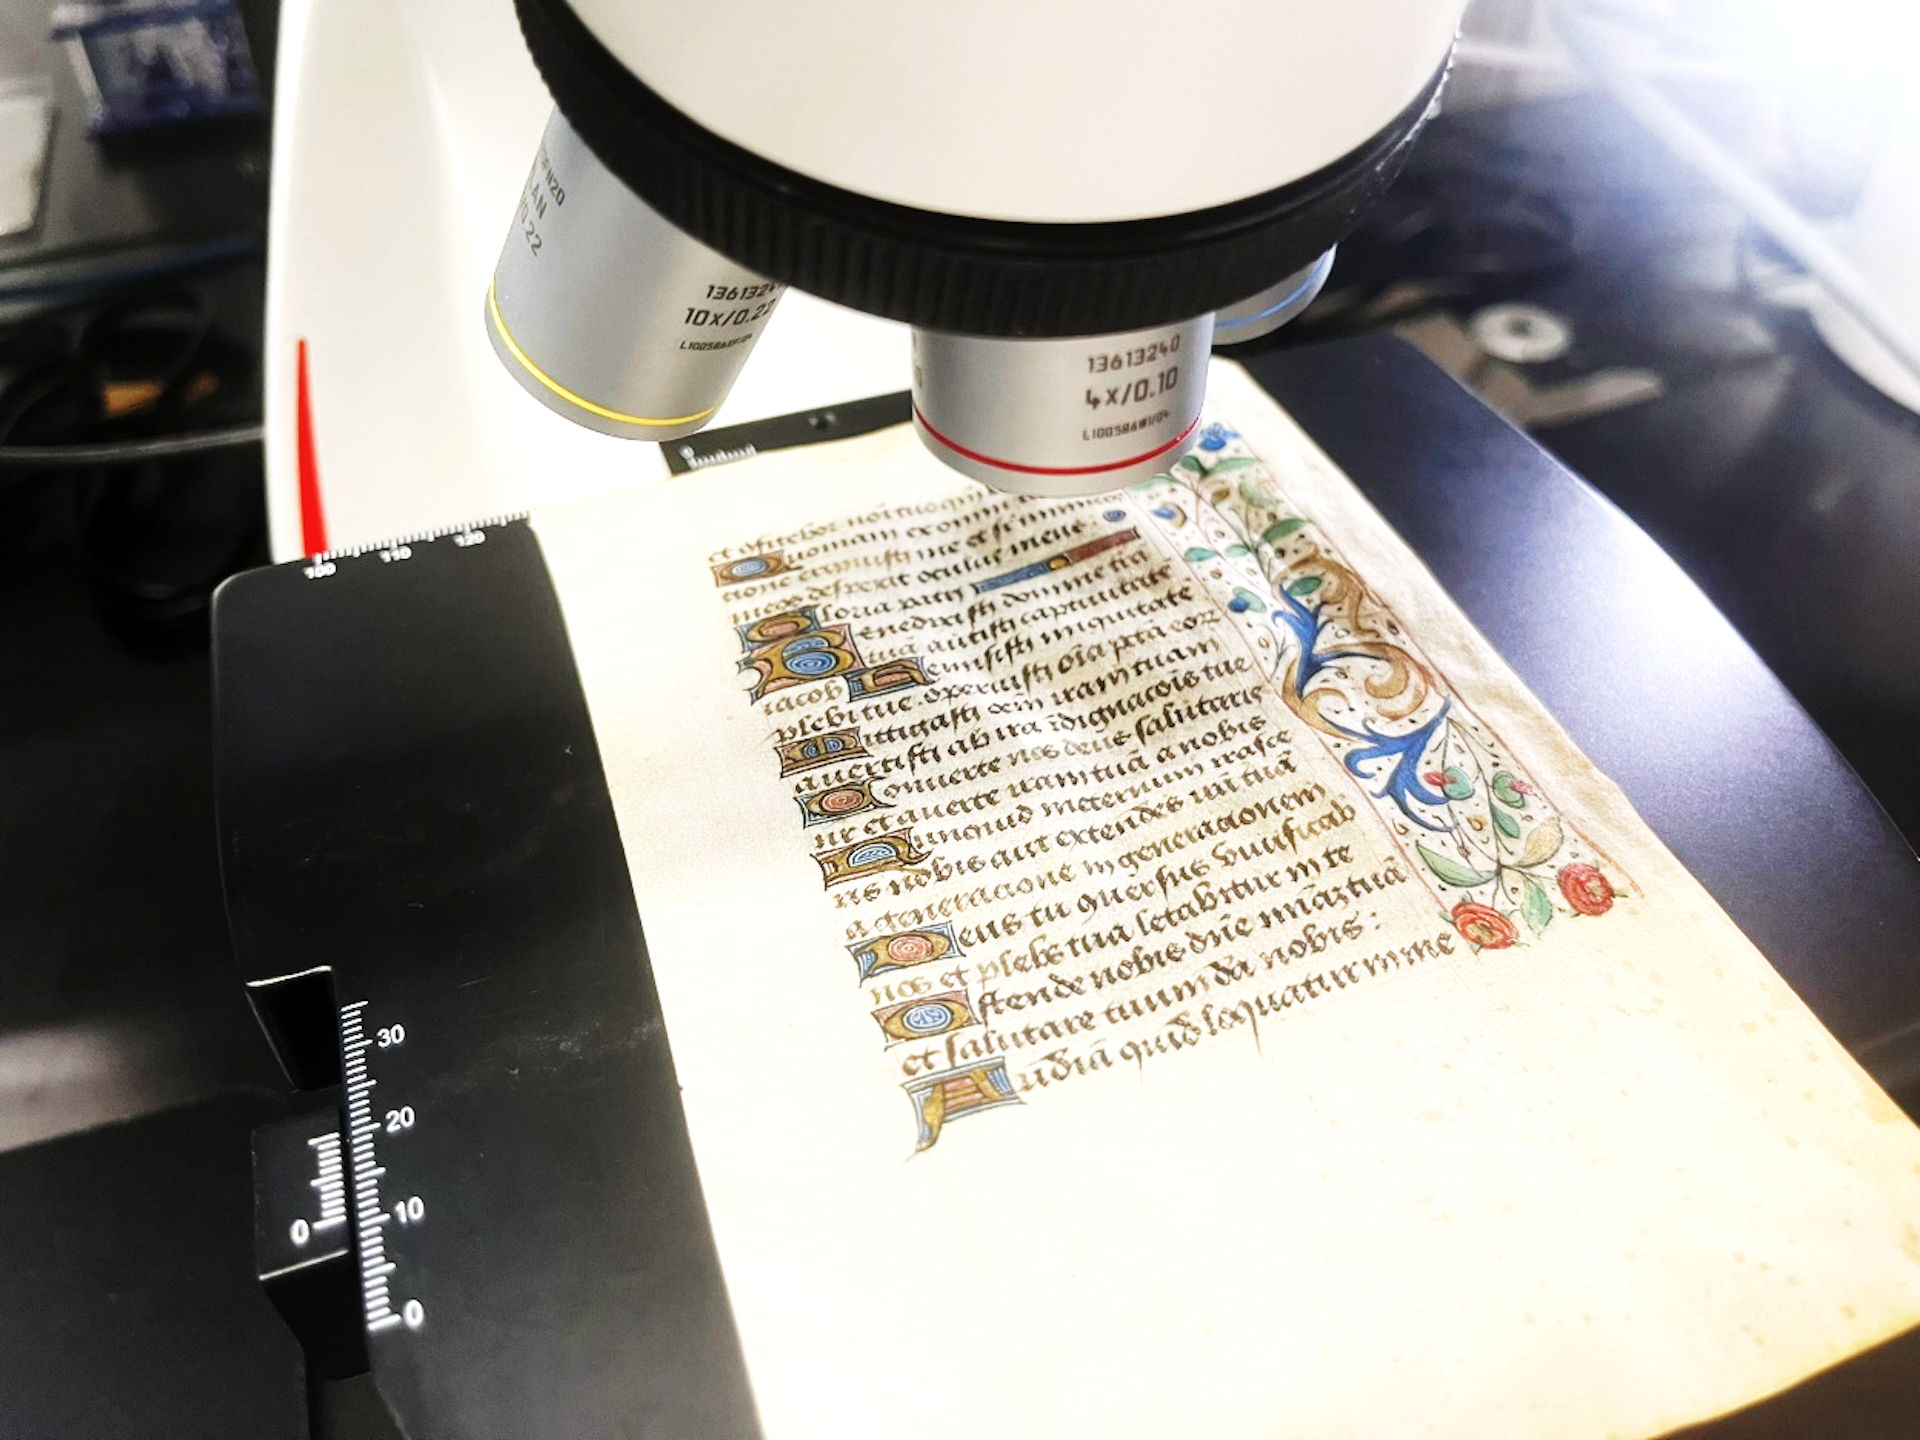 PFN20
LAN
/0.22
1361324
10x/0.22
13613240
4x/0.10
100 110 120
et ꝯfitebor noĩ tuo
Quoniam ex omni
tione eripuisti me et sup inimicos
meos despexit oculus meus
Gloria patri
Benedixisti domine trã
tuã auertisti captiuitatẽ
iacob Remisisti iniquitatẽ
plebis tue . operuisti oĩa pctã eoꝝ
Mittigasti oem iram tuam
auertisti ab ira ĩdignacõis tue
Conuerte nos deus salutaris
nr et auerte iram tuã a nobis
Nunquid ineternum irasce
ris nobis aut extendes irã tuã
a generacione in generacionem
Deus tu ꝯuersus viuificab
nos et plebs tua letabitur in te
Ostende nobis dñe miãꝫ tuã
et salutare tuum da nobis :
Audiã quid loquatur in me
30
20
10
0
0